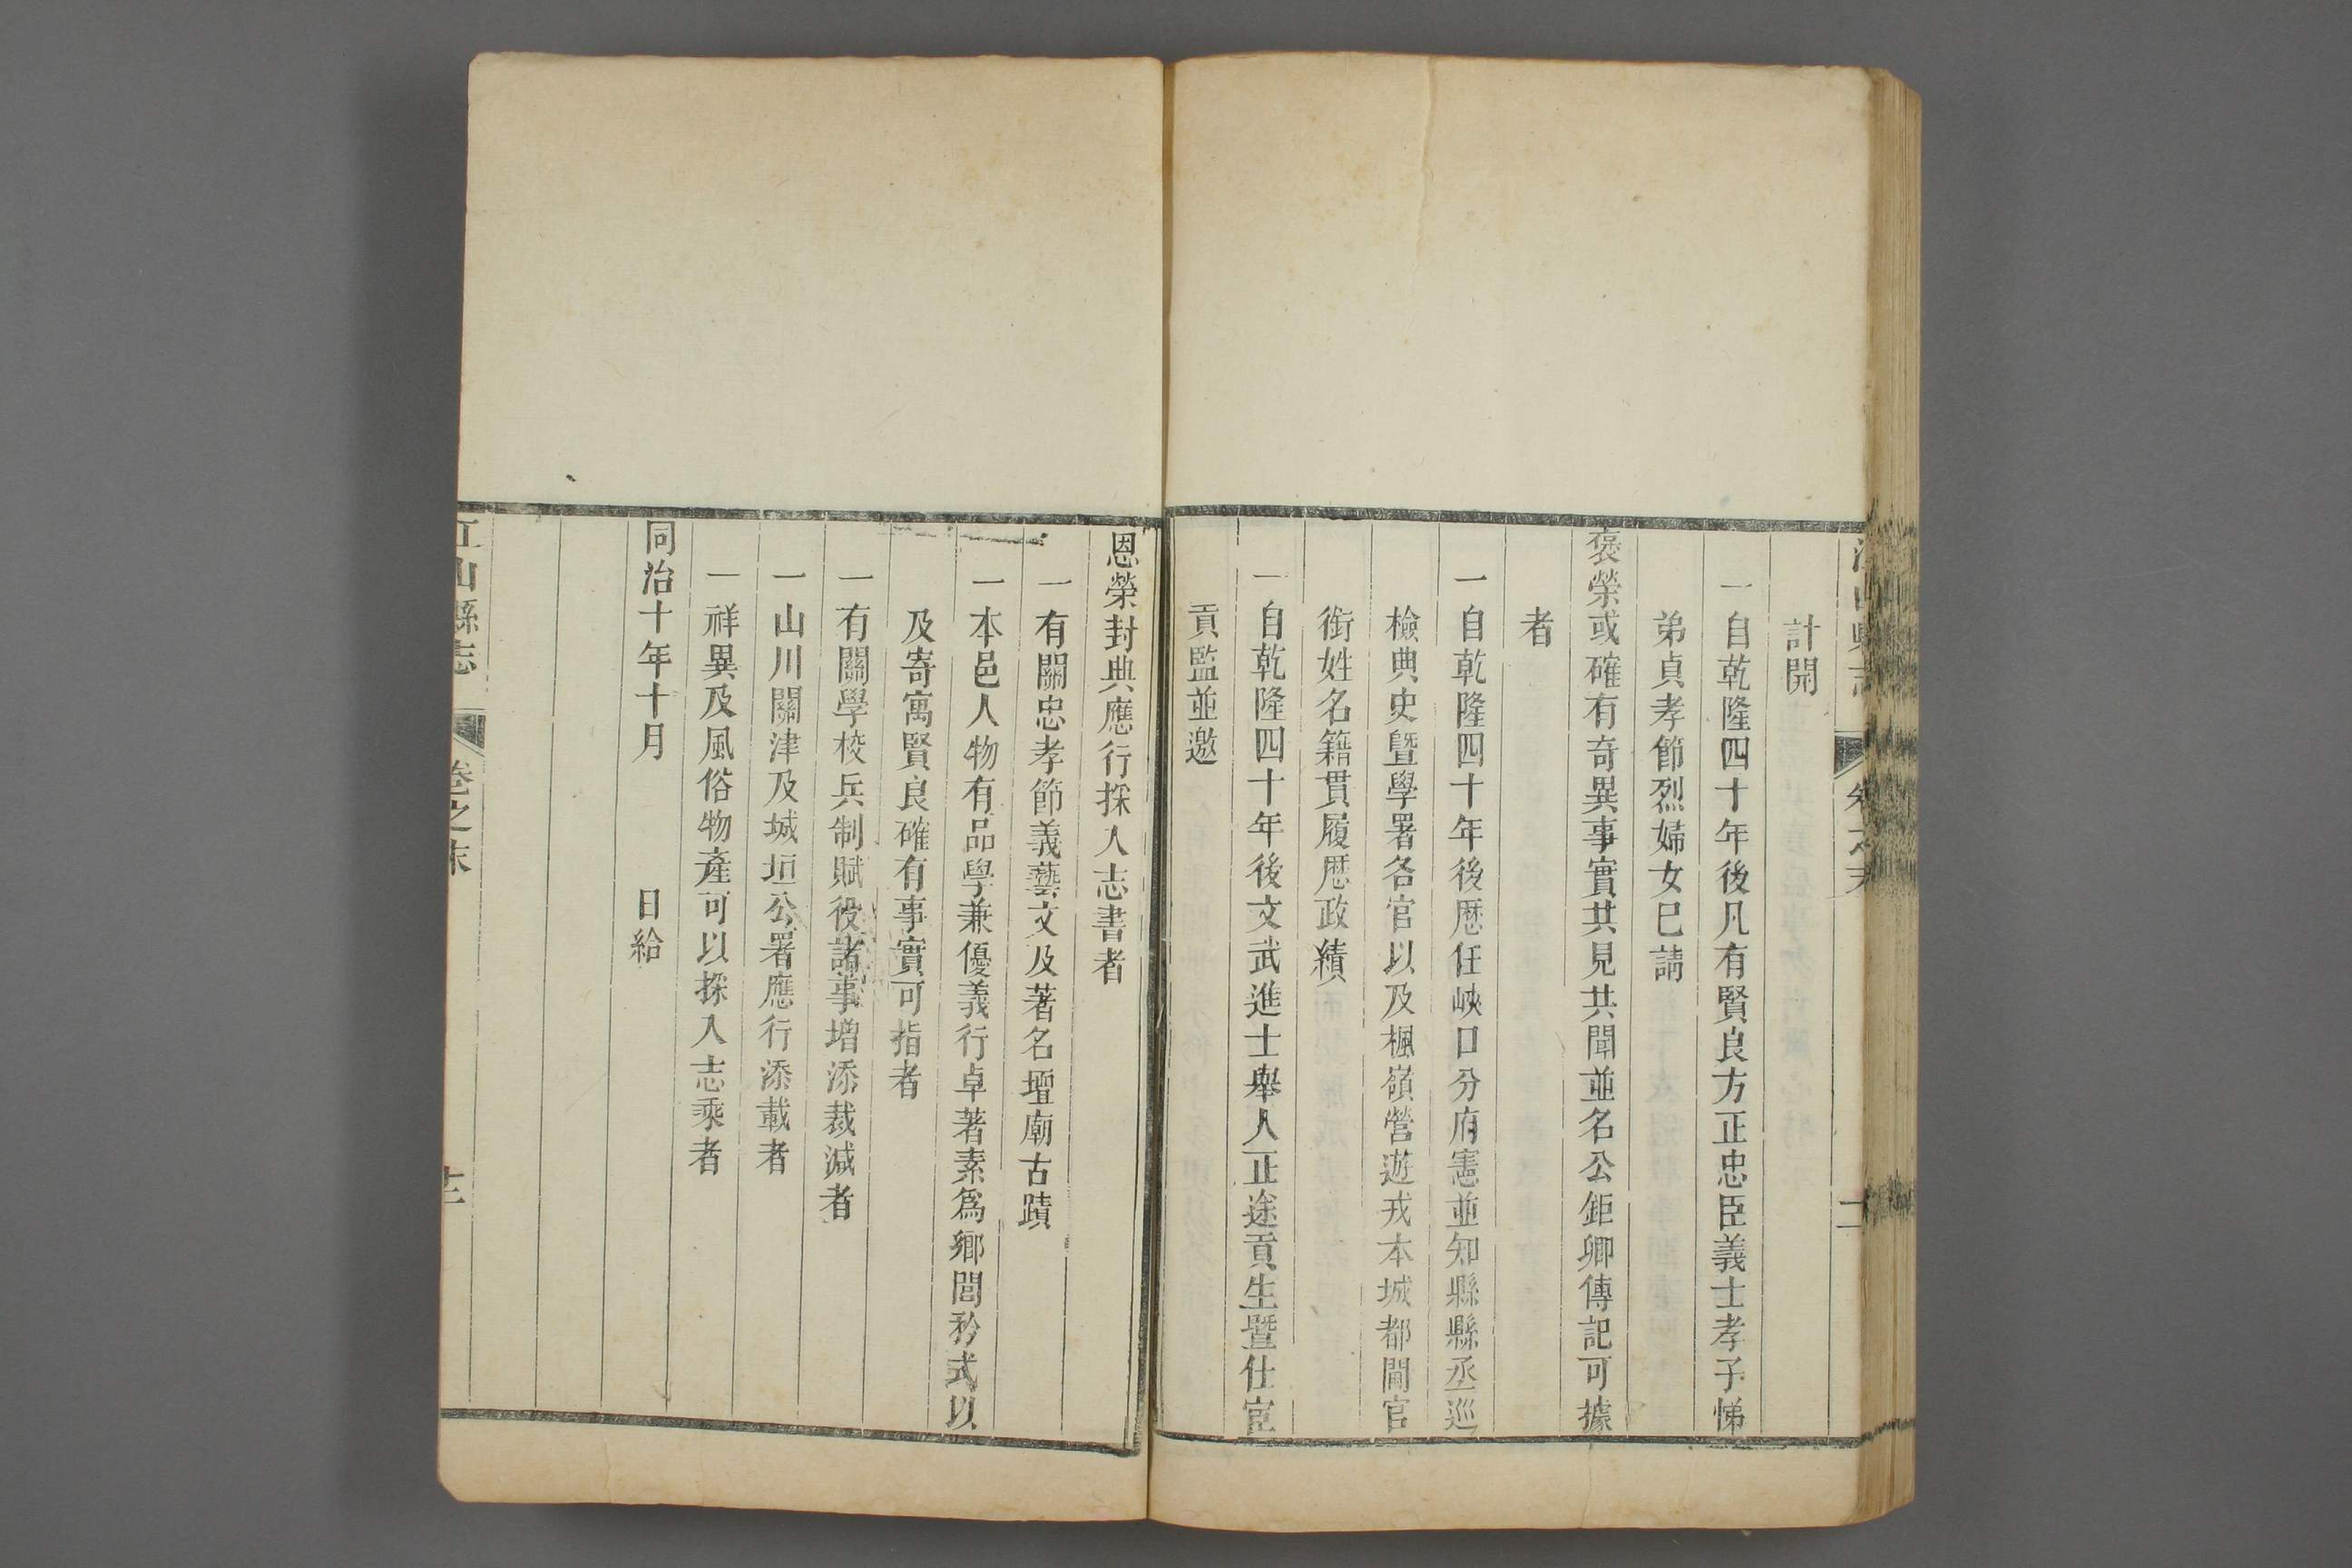 計開
一自乾隆四十年後凡有賢良方正忠臣義士孝子悌
弟貞孝節烈婦女已請
褒榮或確有奇異事實共見共聞並名公鉅卿傳記可據
者
一自乾隆四十年後歷任峽口分府憲並知縣縣丞巡
檢典史暨學署各官以及楓嶺營遊戎本城都閫官
銜姓名籍貫履歷政績
一自乾隆四十年後文武進士舉人正途貢生暨仕宦
貢監並邀
恩榮封典應行採入志書者
一有關忠孝節義藝文及著名壇廟古蹟
一本邑人物有品學兼優義行卓著素為鄉閭矜式以
及寄寓賢良確有事實可指者
一有關學校兵制賦役諸事增添裁減者
一山川關津及城垣公署應行添載者
一祥異及風俗物產可以採入志乘者
同治十年十月 日給
江山縣志 卷之末